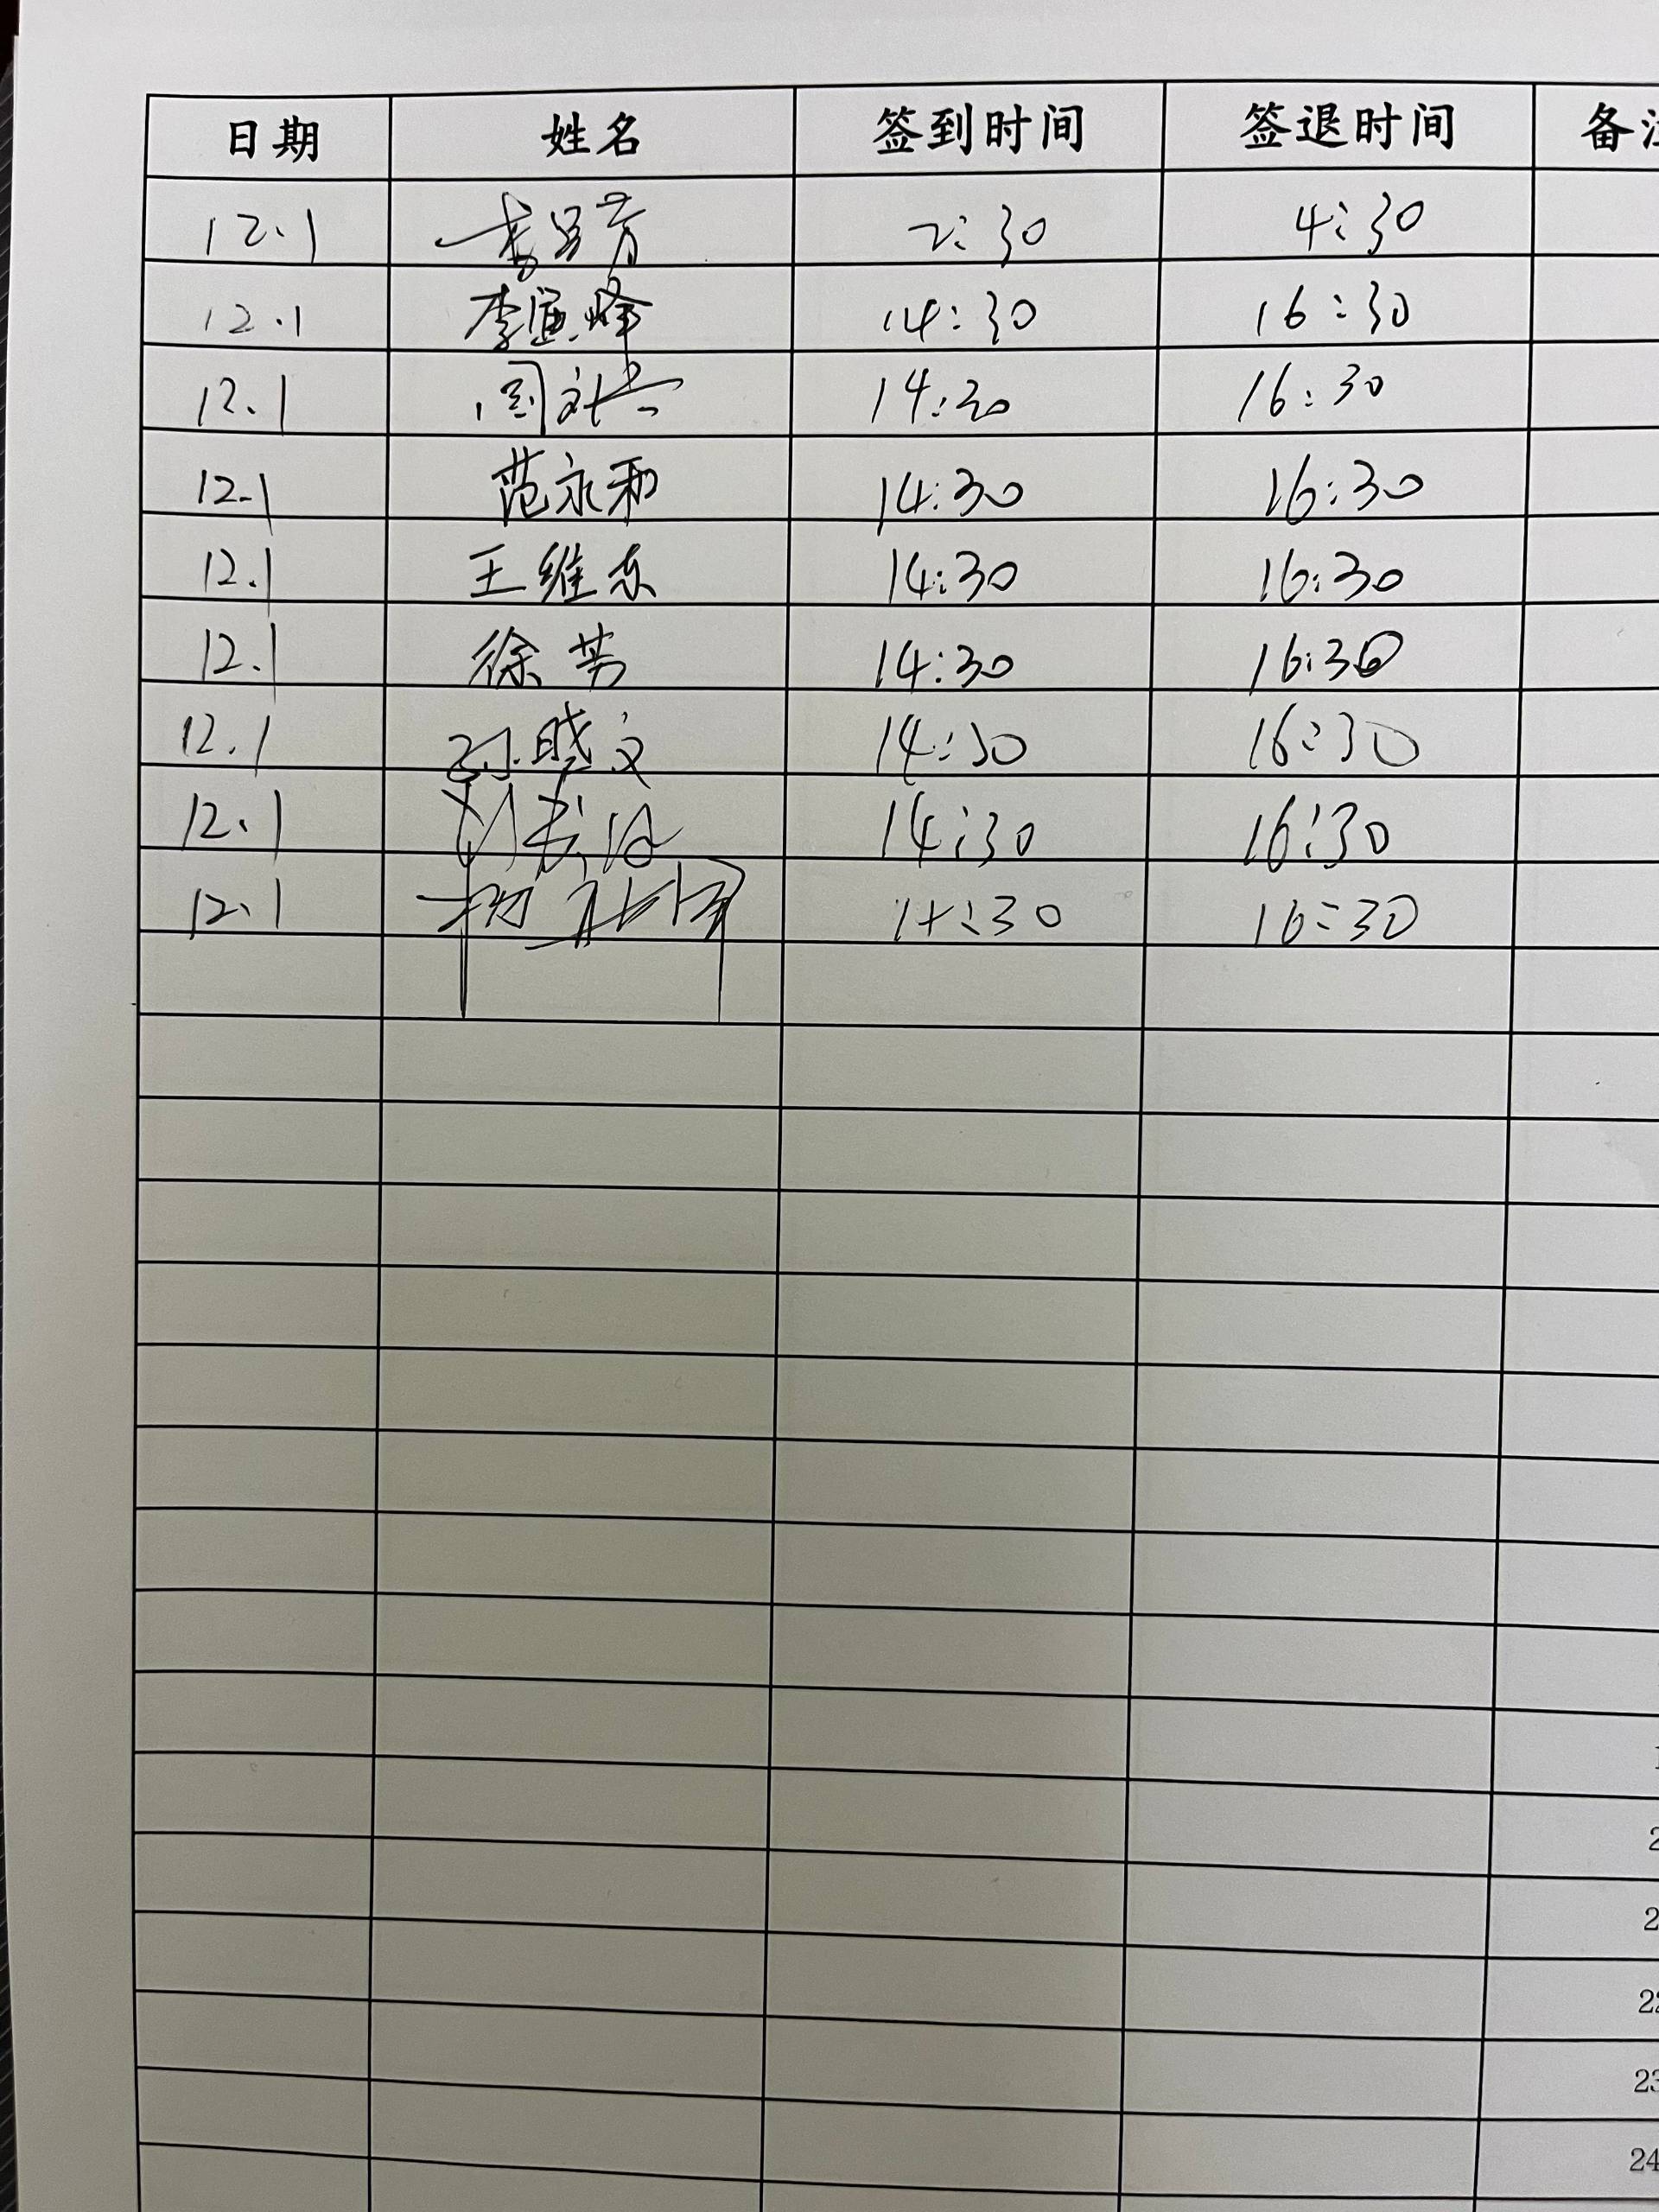 日期 姓名 签到时间 签退时间 备
12.1 2:30 4:30
12.1 李 峰 14:30 16:30
12.1 周 14:30 16:30
12.1 范永和 14:30 16:30
12.1 王维东 14:30 16:30
12.1 徐芳 14:30 16:30
12.1 孙晓文 14:30 16:30
12.1 刘 14:30 16:30
12.1 杨 14:30 16:30
2
2
22
23
24